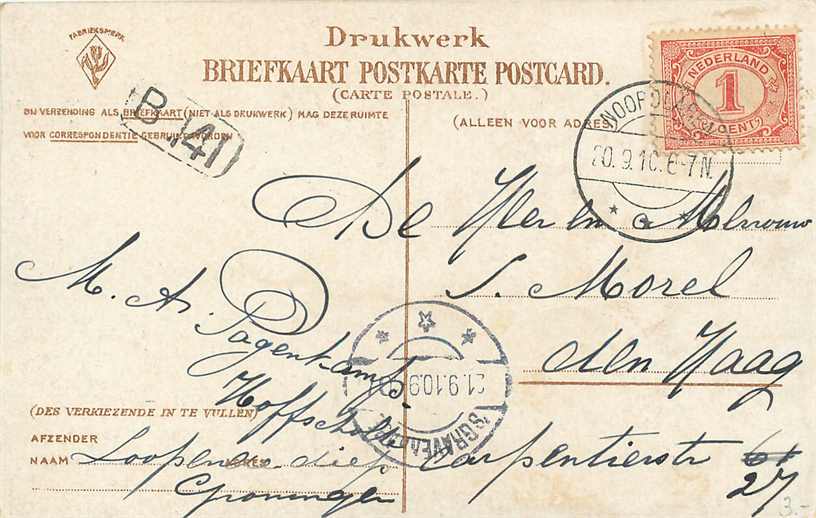 FABRIEKSMERK
Drukwerk
BRIEFKAART POSTKARTE POSTCARD.
(CARTE POSTALE.)
BIJ VERZENDING ALS BRIEFKAART (NIET ALS DRUKWERK) MAG DEZE RUIMTE
VOOR CORRESPONDENTIE GEBRUIKT WORDEN
(ALLEEN VOOR ADRES)
B 141
NEDERLAND
1
CENT
20.9.10.6-7N.
De Heer en Mevrouw
S. Morel
den Haag
Carpentierstr 61
27
M. A. Pagenkamp
21.9.10.9
'SGRAVENHAGE
(DES VERKIEZENDE IN TE VULLEN)
AFZENDER
NAAM
ADRES
Loopende diep
Groningen
3.-